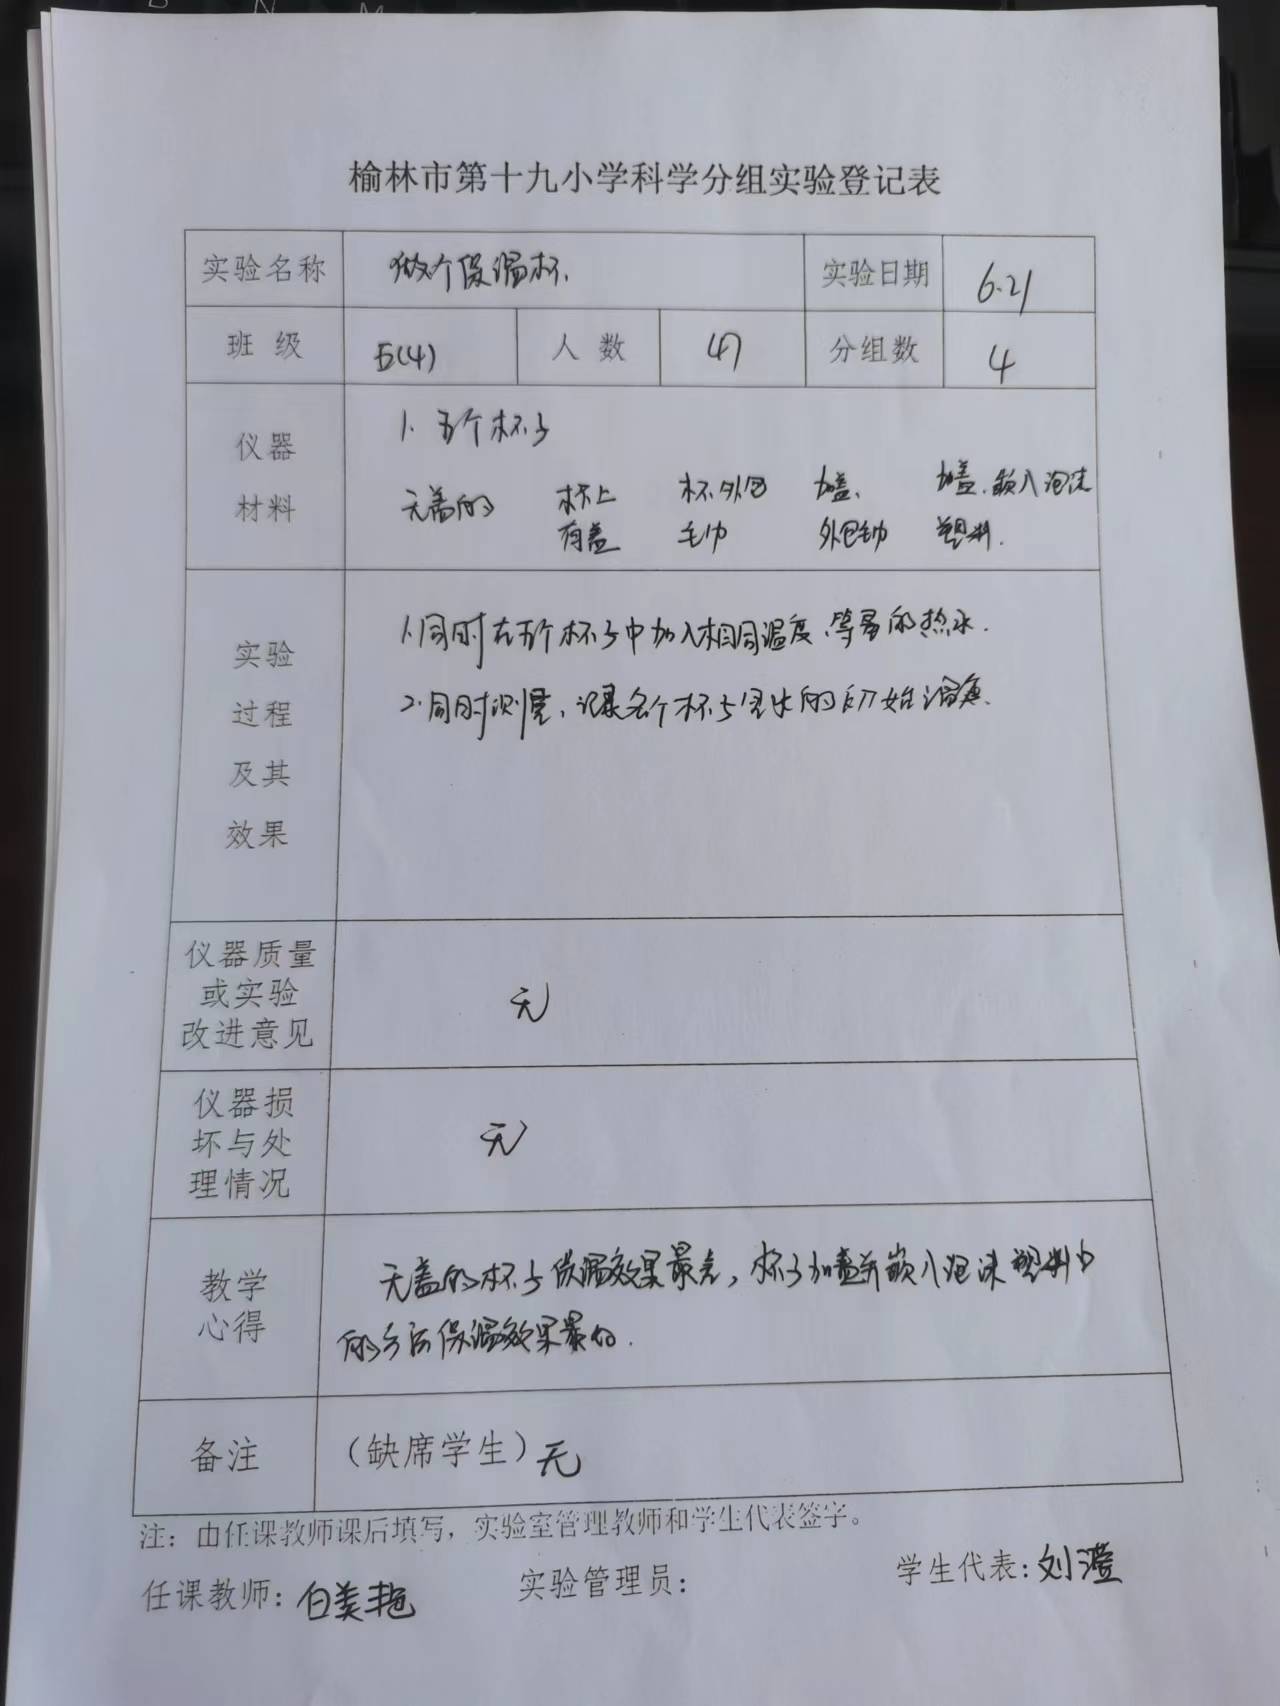 榆林市第十九小学科学分组实验登记表
实验名称 做个保温杯. 实验日期 6.21
班 级 五(4) 人 数 47 分组数 4
仪器
材料
1. 五个杯子
无盖的 杯上 杯外包 加盖、 加盖.嵌入泡沫
有盖 毛巾 外包毛巾 塑料.
实验
过程
及其
效果
1.同时在五个杯子中加入相同温度、等量的热水.
2.同时测量、记录各个杯子里水的初始温度.
仪器质量
或实验
改进意见
无
仪器损
坏与处
理情况
无
教学
心得
无盖的杯子保温效果最差，杯子加盖并嵌入泡沫塑料中
的方法保温效果最好.
备注 （缺席学生）无
注：由任课教师课后填写，实验室管理教师和学生代表签字。
任课教师: 白美艳 实验管理员: 学生代表: 刘滢